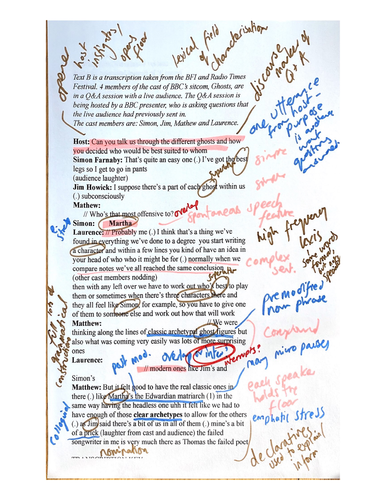 opener
host
instigator
opens
floor
lexical field
of
characterisation
discourse
marker of
Q+A
Text B is a transcription taken from the BFI and Radio Times
Festival. 4 members of the cast of BBC's sitcom, Ghosts, are
in a Q&A session with a live audience. The Q&A session is
being hosted by a BBC presenter, who is asking questions that
the live audience had previously sent in.
The cast members are: Simon, Jim, Mathew and Laurence.
one utterance
from host -
purpose
is
audience
want
questions
answered
Host: Can you talk us through the different ghosts and how
you decided who would be best suited to whom
Simon Farnaby: That's quite an easy one (.) I've got the best
legs so I get to go in pants
(audience laughter)
simple
Jim Howick: I suppose there's a part of each ghost within us
(.) subconsciously
simple
Mathew:
// Who's that most offensive to? overlap
Simon: Martha
spontaneous speech
feature
stress
Laurence: // Probably me (.) I think that's a thing we've
found in everything we've done to a degree you start writing
a character and within a few lines you kind of have an idea in
your head of who who it might be for (.) normally when we
compare notes we've all reached the same conclusion
(other cast members nodding)
high frequency
lexis
complex
sent.
then with any left over we have to work out who's best to play
them or sometimes when there's three characters there and
they all feel like Simon for example, so you have to give one
of them to someone else and work out how that will work
full, lots of
grammatical
constructions
Matthew: // We were
thinking along the lines of classic archetypal ghost figures but
also what was coming very easily was lots of more surprising
ones
premodified
noun phrase
compound
post mod. overlap or interrupts?
Laurence:
// modern ones like Jim's and
Simon's
many micro pauses
Matthew: But it felt good to have the real classic ones in
there (.) like Martha's the Edwardian matriarch (1) in the
same way having the headless one uhh it felt like we had to
have enough of those clear archetypes to allow for the others
(.) as Jim said there's a bit of us in all of them (.) mine's a bit
of a prick (laughter from cast and audience) the failed
songwriter in me is very much there as Thomas the failed poet
each speaker
holds the
floor
emphatic stress
colloquial
nomination
declaratives
used to explain
inform